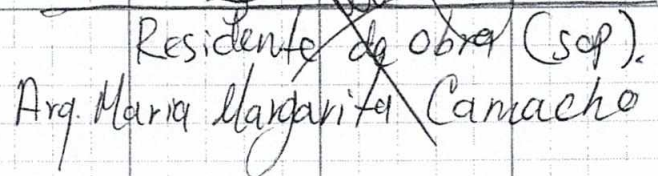 Residente de obra (sop).
Arq. Maria Margarita Camacho